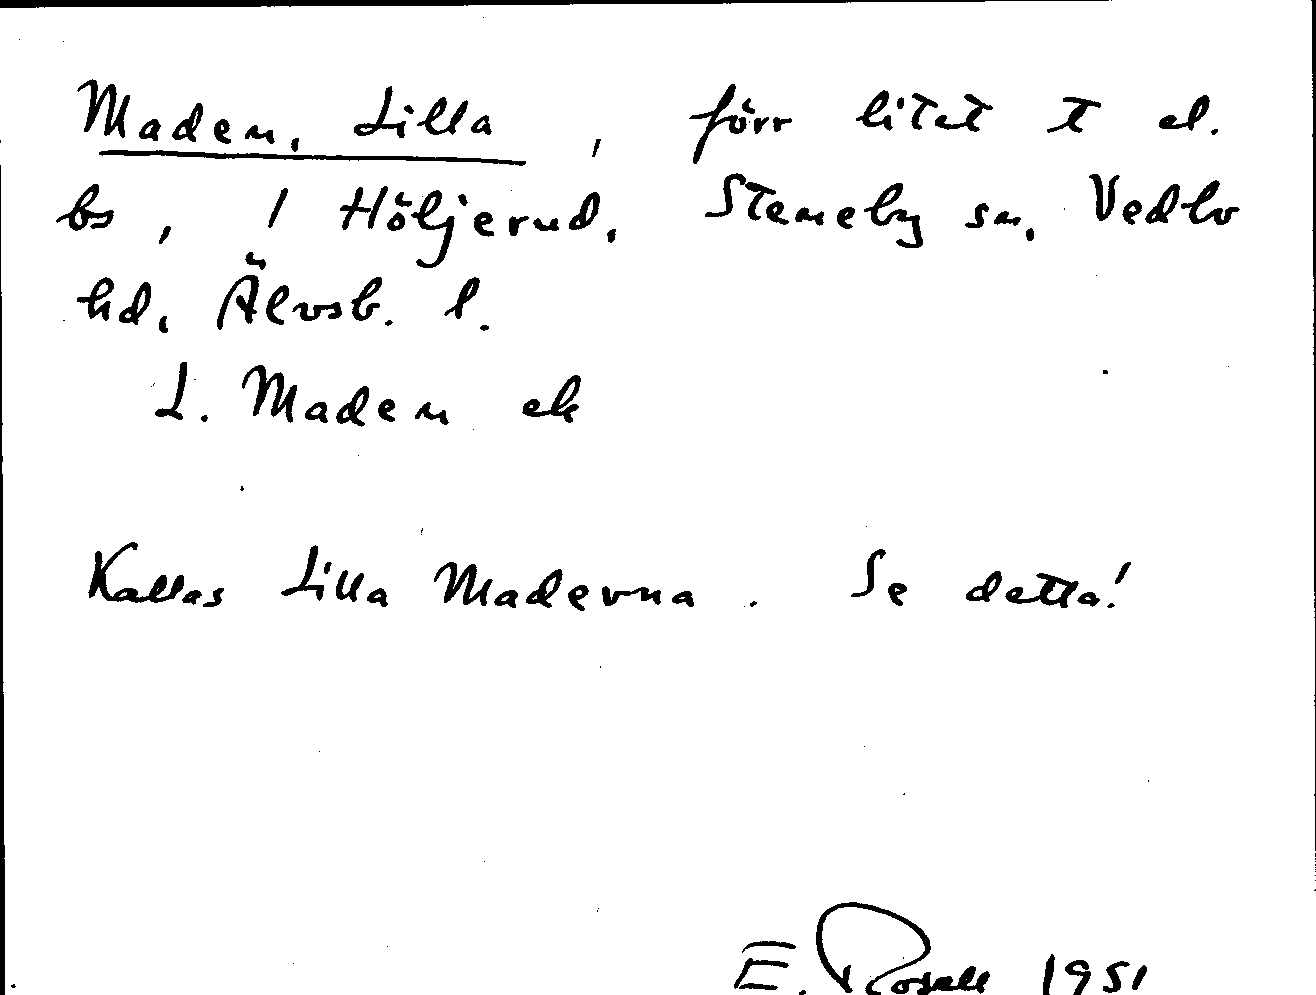 Maden, Lilla, förr litet t el.
bs, 1 Höljerud, Steneby sn, Vedbo
hd, Älvsb. l.
L. Maden ek
Kallas Lilla Maderna. Se detta!
E. Rosell 1951